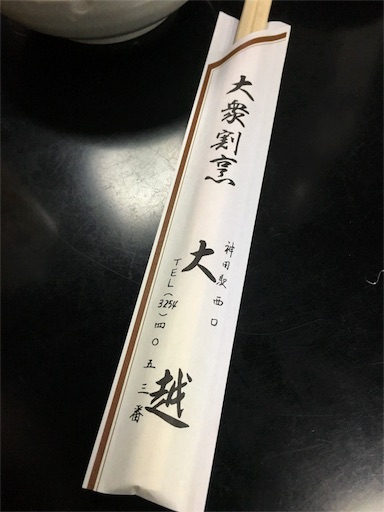 大衆割烹
神田駅西口
大越
TEL(3254)四〇五三番